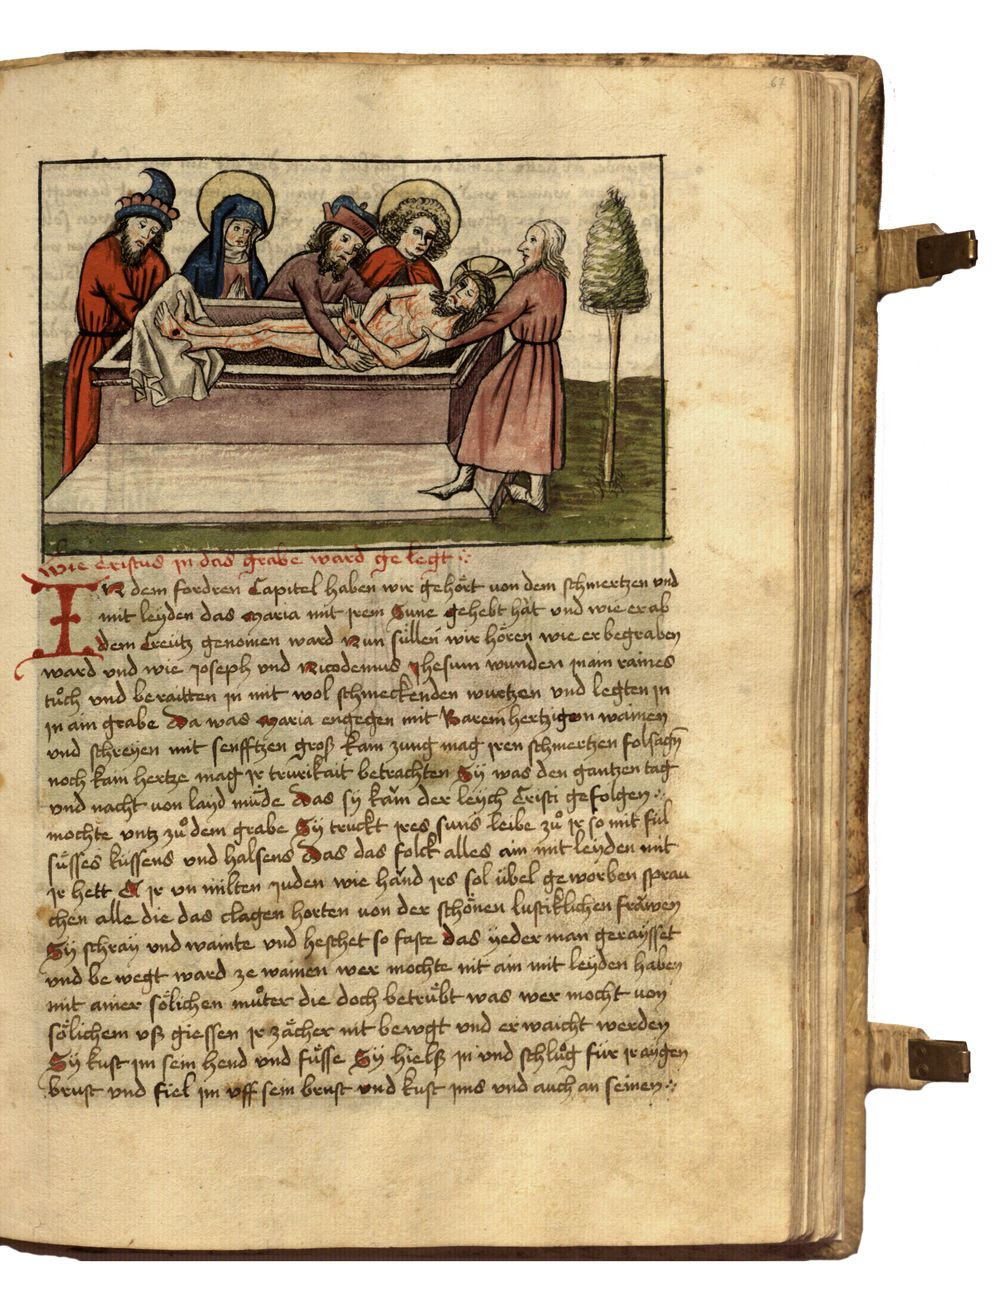 67
Wie cristus jn das grabe ward gelegt
JN dem fordren Capitel haben wir gehört von dem schmertzen vnd
mit leyden das Maria mit jrem Sune gehebt hät vnd wie er ab
dem Creütz genomen ward Nun süllen wir hören wie er begraben
ward vnd wie Joseph vnd Nicodemus Jhesum wunden jn ain raines
tůch vnd beraitten jn mit wol schmeckenden wurtzen vnd legten jn
jn ain grabe Da was Maria engegen mit Barem hertzigen wainen
vnd schreyen mit senfftzen groß kain zung mag jren schmertzen folsagen̄
noch kain hertze mag jr trurikait betrachten Sy was den gantzen tag
vnd nacht von layd müde das sy kam der leych Cristi gefolgen
mochte vntz zů dem grabe Sy truckt jres suns leibe zů jr so mit fil
süsses küssens vnd halsens Das das folck alles ain mit leyden mit
jr hett jr vn milten juden wie hand jrs sol übel geworben sprau
chen alle die das clagen horten von der schönen lustiklichen frawen
Sy schray vnd wainte vnd heschet so faste das yederman geraysset
vnd be wegt ward ze wainen wer mochte nit ain mit leyden haben
mit ainer sölichen můter die doch betrübt was wer mocht von
sölichem vß giessen jr zächer nit bewgt vnd er waicht werden
Sy kust jm sein hend vnd füsse Sy hielß jn vnd schlůg für jr aygen
brust vnd fiel jm vff sein brust vnd kust jms vnd auch an seinen